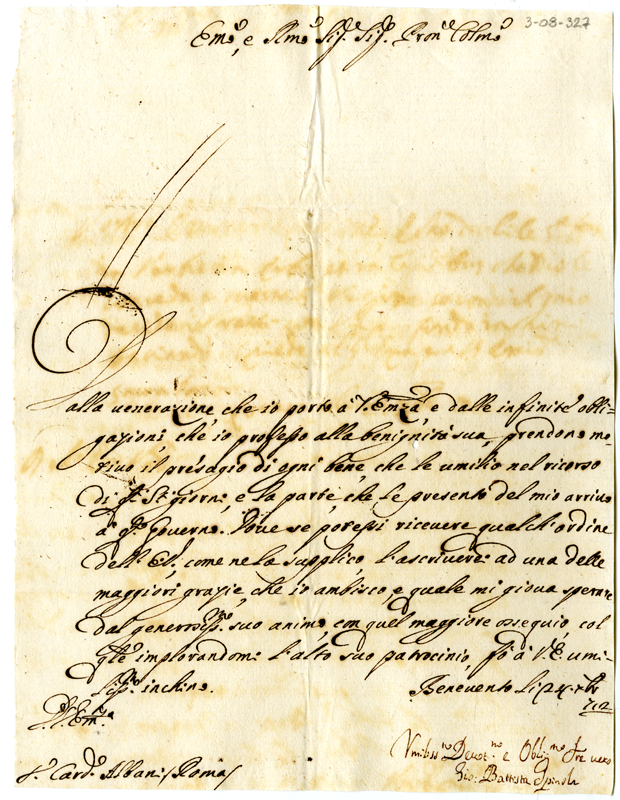 3-08-327
Em.o, e R.mo Sig.r Sig.r Pron.e Col.mo
Dalla venerazione, che io porto à V. Emza, e dalle infinite obli=
gazioni, che io professo alla benignità sua, prendono mo=
tivo il presagio di ogni bene, che le umilio nel ricorso
di q.ti S.ti giorni, e la parte, che le presento del mio arrivo
à q.o governo. Dove se potessi ricevere qualch'ordine
dell'E.V., come ne la supplico, l'ascriverei ad una delle
maggiori grazie, che io ambisco, e quale mi giova sperare
dal generosiss.mo suo animo, con quel maggiore ossequio, col
q.le implorandomi l'alto suo patrocinio, fò à V.E. umi=
liss.mo inchino.
Benevento li 24 Xbre
712
D. V. Em.za
Umiliss.mo Devot.mo e Obblig.mo Ser.re vero
Gio: Battista Spinola
S.r Card.e Albani / Roma /